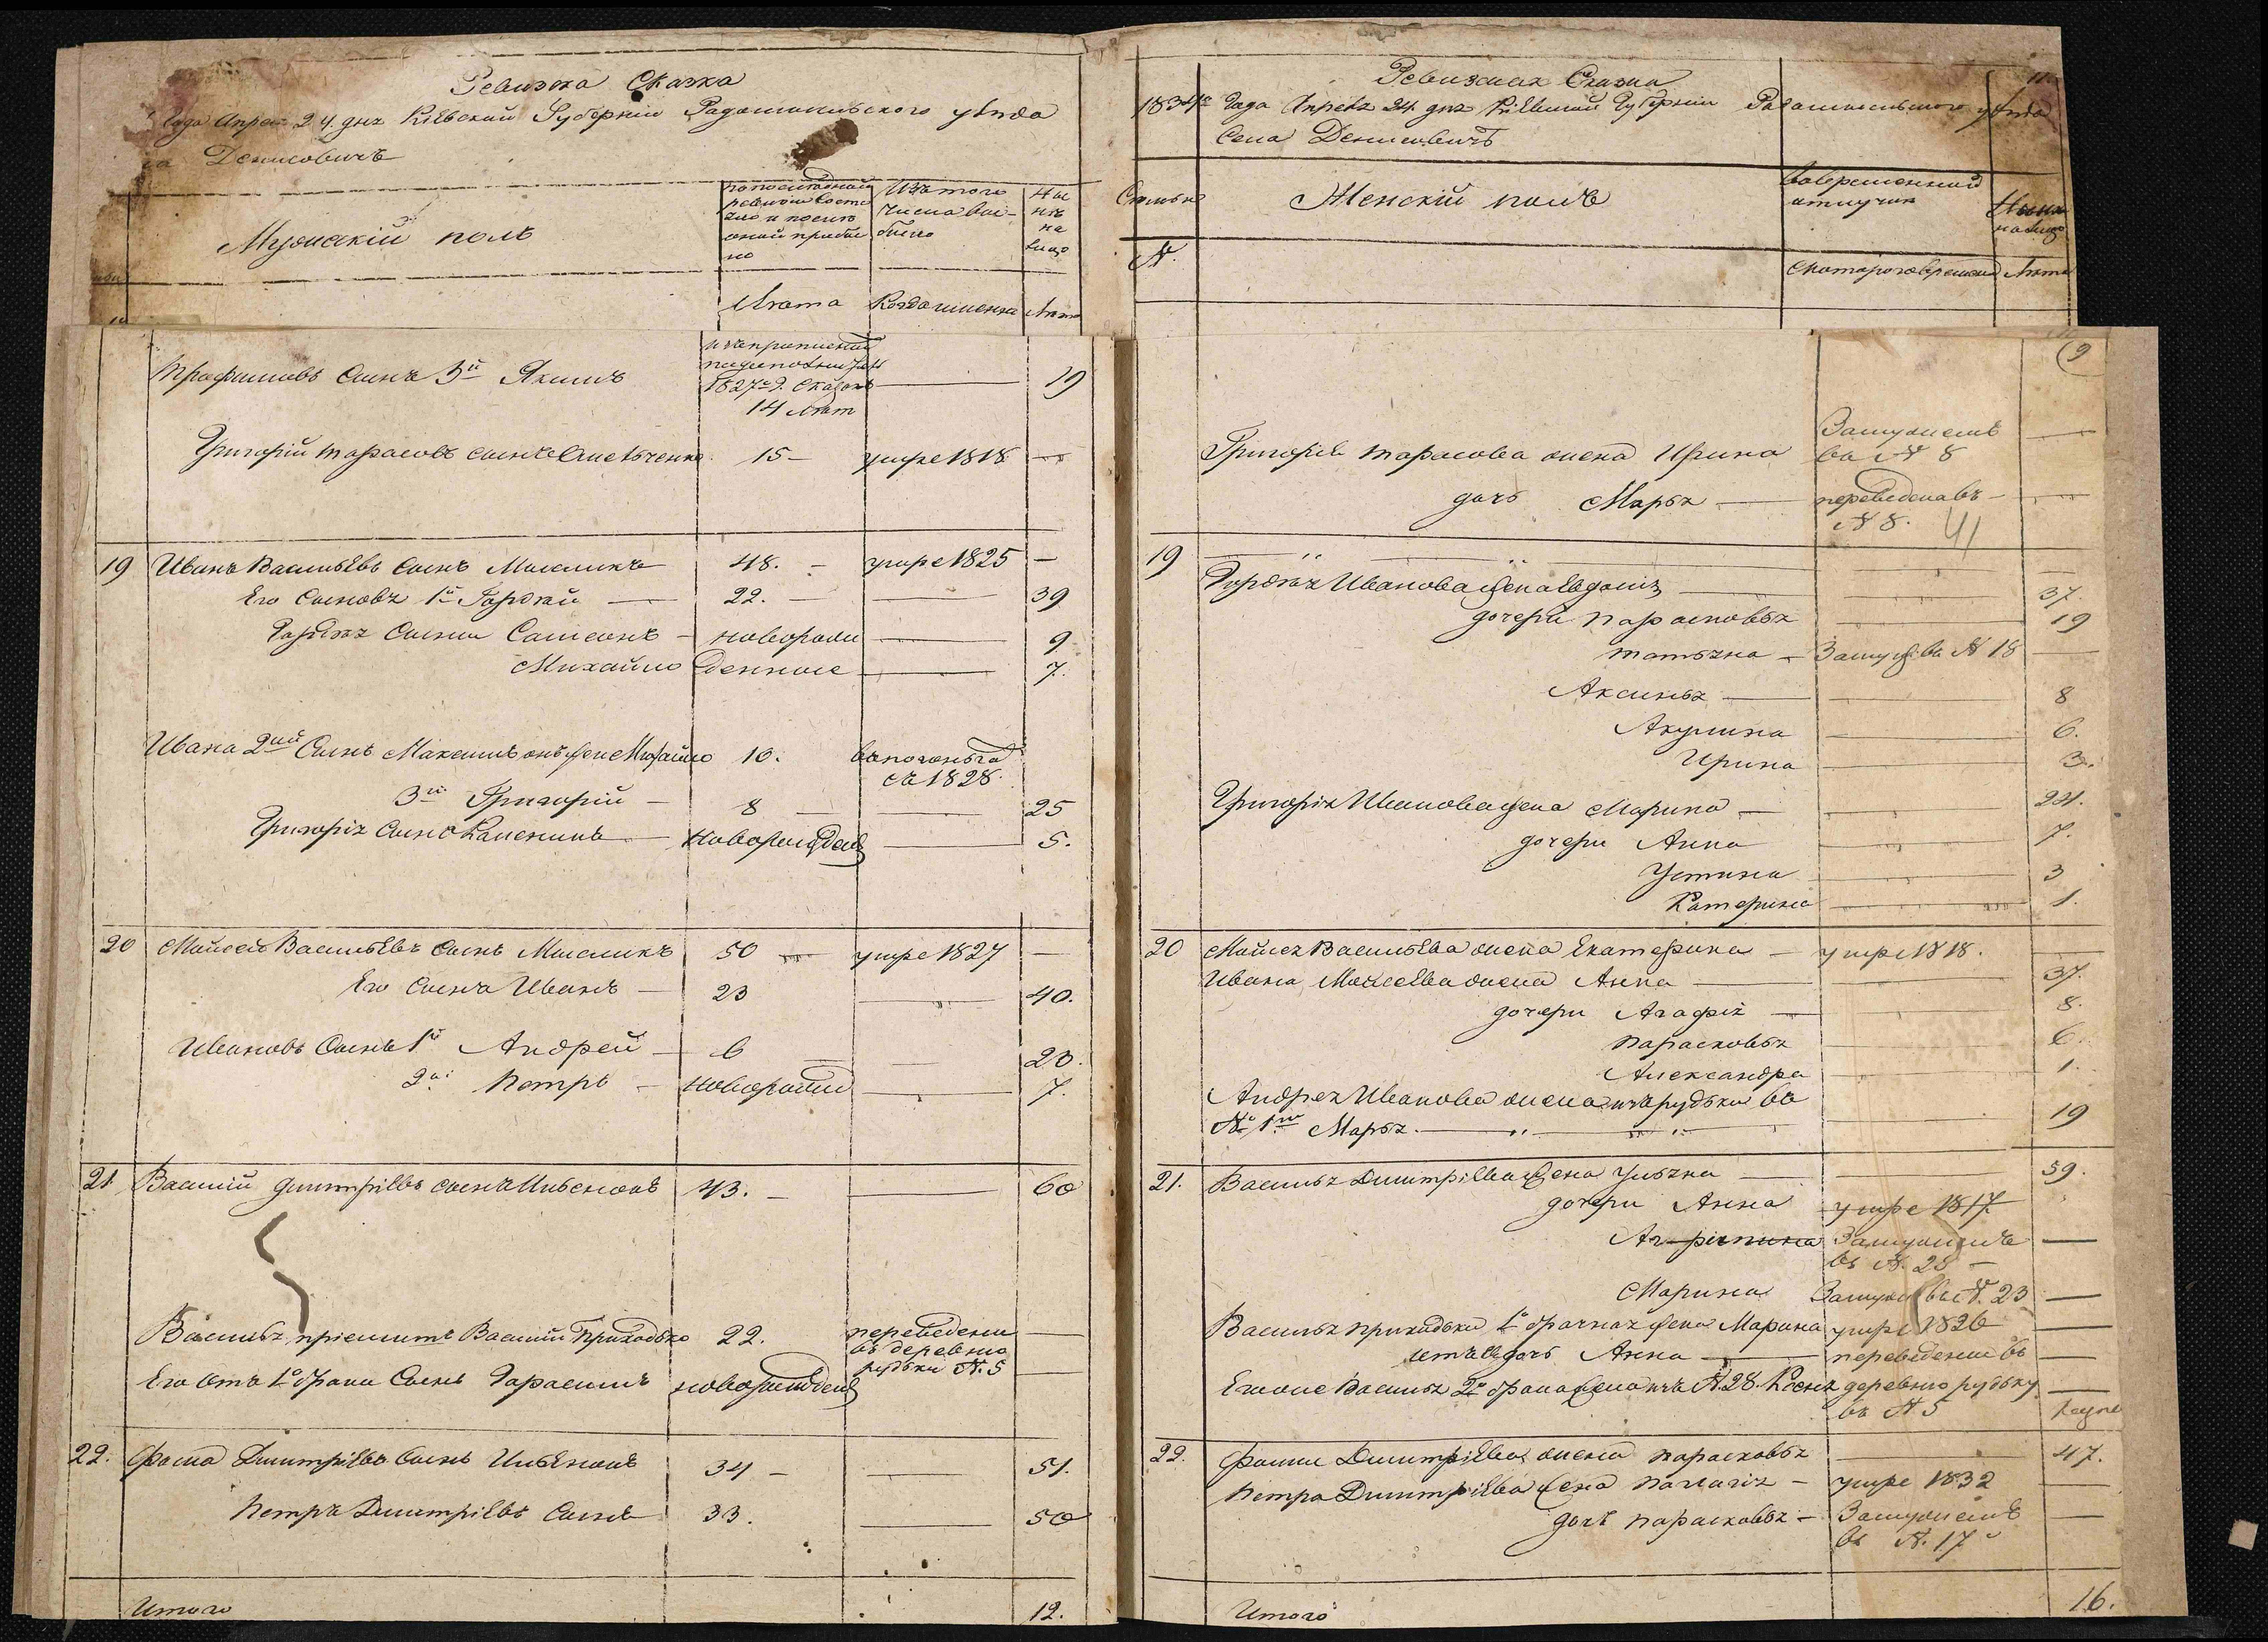 Ревизска Сказка
Года Апреля 24. дня Кіевской Губерніи Радомысльского уѣзда
Денисовичъ
Мужескій полъ
по последней
ревизіи состо
яло и после
оной прибы
ло
Изъ того
числа вы-
было
Ны
нѣ
на
лицо
Лѣта
Когда именно
Лѣта
Трофимовъ Сынъ 3й Якимъ
1827го Г. Сказокъ
14 лѣт
19
Григорій Тарасовъ сынъ
15 -
умре 1818
19 Иванъ Васильевъ Сынъ Мысликъ 48. - умре 1825 -
Его Сыновья 1й Гордѣй 22. 39
Гордѣя Сыны Самсонъ - новорож 9
Михайло денные 7.
Ивана 2ый Сынъ Максимъ онъ же Михайло 10.
съ 1828.
3й Григорій - 8 25
Григорія Сынъ Каленикъ - Новорожден 5.
20 Мойсей Васильевъ Сынъ Мысликъ 50 умре 1827 -
Его Сынъ Иванъ - 23 40.
Ивановъ Сынъ 1й Андрей - 6 23.
2й Петръ - новорожд 7.
21 Василій Дмитріевъ сынъ 43. - 60
Василья пріемышъ Василій Приходько 22. переведены
въ деревню
рудьки №. 5
Его отъ 1го брака Сынъ Гарасимъ новорожден
22. Фома Дмитріевъ Сынъ 34 - 51.
Петръ Дмитріевъ Сынъ 33. 50
Итого 12.
Ревизская Сказка
1834го Года Апреля 24. дня Кіевской Губерніи Радомысльского уѣзда
Села Денисовичъ
11.
Семья
№.
Женскій полъ
Вовременной
отлучки
Ныне
налицо
Скотораго времени
Лѣта
9
Григорія Тарасова жена Ирина Замужемъ
въ № 8
дочь Марья - переведена въ -
№ 8.
41
19
Гордѣя Иванова жена Евдокія 37.
дочери Парасковья 19
Татьяна - Замуж въ № 18
Аксинья 8
Акулина 6.
Ирина 3.
Григорія Иванова жена Марина - 24.
дочери Анна 7.
Устина 3
Катерина 1.
20 Мойсея Васильева жена Екатерина - умре 1818.
Ивана Мойсеева жена Анна 37.
дочери Агафія 8.
Парасковья 6.
Александра 1.
Андрея Иванова жена изъ рудьки въ
№ 1м Марья. 19
21. Василья Дмитріева жена Ульяна 59.
дочери Анна умре 1817.
Агрипина Замужемъ
въ №. 25 -
Марина Замуж въ №. 23
Василья приходьки 1го брачная жена Марина умре 1826
отъ ней дочь Анна переведены въ
Егоже Василья 2го брака жена изъ №. 28. Ксенія деревню рудьку
въ № 5
22. Фомы Дмитріева жена Парасковья 47.
Петра Дмитріева жена Палагія - умре 1832
дочь Парасковья - Замужемъ
въ №. 17
Итого 16.